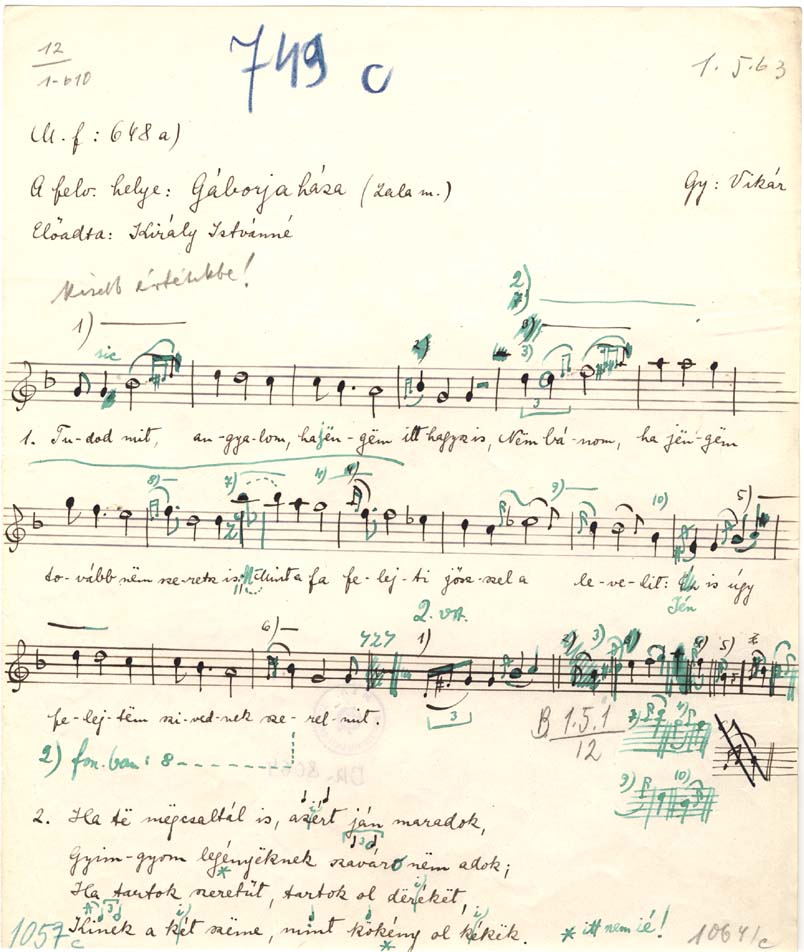 12
1-610
749 c
1.5.63
M. f : 648 a)
A felv. helye: Gáborjaháza (Zala m.)
Gy: Vikár
Előadta: Király Istvánné
Kisebb értékbe!
2)
1)
sic
2)
3)
3
1. Tu-dod mit, an-gya-lom, ha jën-gëm itt hagysz is, Nëm bá-nom, ha jën-gëm
8)
7)
9)
10)
5)
to-vább nëm sze-retsz is; Mint a fa fe-lej-ti ősz-szel a le-ve-lit: is úgy
Jén
2. vsz.
6)
1)
2)
3)
5)
3
fe-lej-tëm szi-ved-nek sze-rel-mit.
B 1.5.1
12
3)
4)
2) fon.ban: 8
9)
10)
2. Ha të mëgcsaltál is, azért ján maradok,
Gyim-gyom legényëknek szaváro nëm adok;
Ha tartok szeretűt, tartok ol dërékët,
Kinek a két szëme, mint kökény ol kékik.
* itt nem ié!
1057 c
1064/c